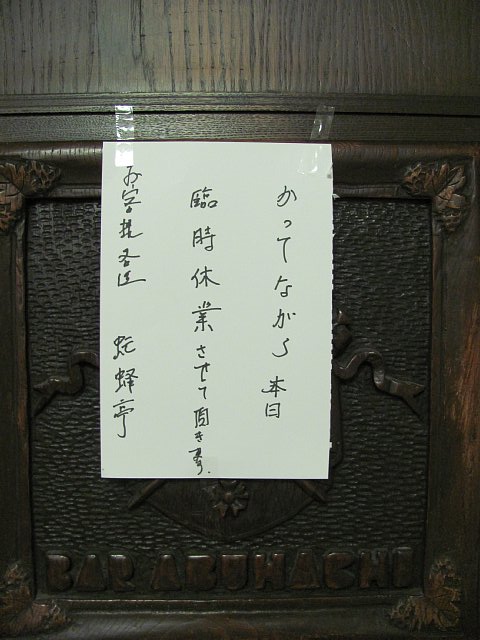 かってながら 本日
臨時休業させて頂きます.
お客様各位 虻蜂亭
BAR ABUHACHI